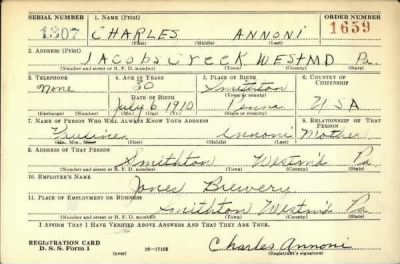 SERIAL NUMBER 1. NAME (Print) ORDER NUMBER
1307 CHARLES ANNONI 1659
(First) (Middle) (Last)
2. ADDRESS (Print)
JACOBS CREEK WESTMD Pa.
(Number and street or R. F. D. number) (Town) (County) (State)
3. TELEPHONE 4. AGE IN YEARS 5. PLACE OF BIRTH 6. COUNTRY OF CITIZENSHIP
None 30 Smithton
DATE OF BIRTH
July 6 1910 Penna USA
(Exchange) (Number) (Mo.) (Day) (Yr.) (State or country)
7. NAME OF PERSON WHO WILL ALWAYS KNOW YOUR ADDRESS 8. RELATIONSHIP OF THAT PERSON
Annoni Mother
(Mr., Mrs., Miss) (First) (Middle) (Last)
9. ADDRESS OF THAT PERSON
Smithton Westmd Pa
(Number and street or R. F. D. number) (Town) (County) (State)
10. EMPLOYER'S NAME
Jones Brewery
11. PLACE OF EMPLOYMENT OR BUSINESS
Smithton Westmd Pa
(Number and street or R. F. D. number) (Town) (County) (State)
I AFFIRM THAT I HAVE VERIFIED ABOVE ANSWERS AND THAT THEY ARE TRUE.
REGISTRATION CARD
D. S. S. Form 1 (over) Charles Annoni
(Registrant's signature)